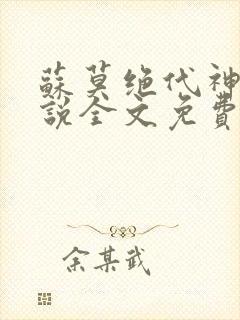 蘇莫绝代神
說全文免費
余某武